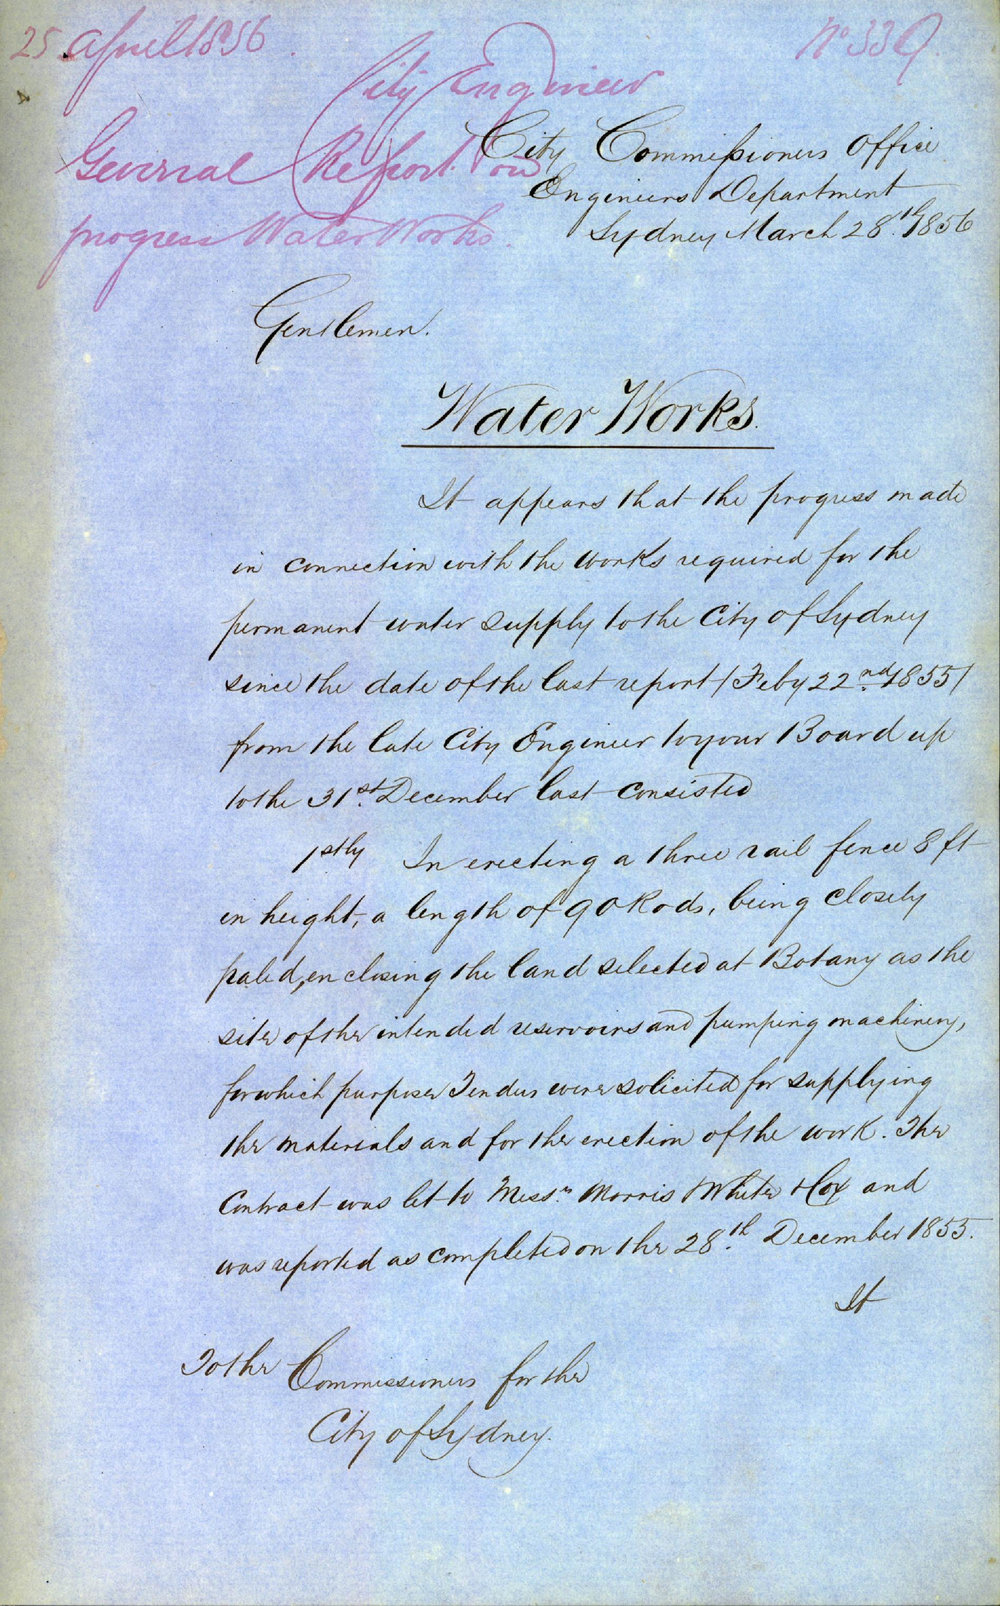 25 April 1856.
No 339
City Engineer
General Report on
progress Water Works.
City Commissioners Office
Engineers Department
Sydney March 28.th 1856
Gentlemen.
Water Works.
It appears that the progress made
in connection with the works required for the
permanent water supply to the City of Sydney
since the date of the last report / Feby 22nd. 1855 /
from the late City Engineer to your Board up
to the 31st. December last consisted
1stly In erecting a three rail fence 8 ft
in height, a length of 90 Rods, being closely
paled, enclosing the land selected at Botany as the
site of the intended reservoirs and pumping machinery,
for which purpose Tenders were solicited for supplying
the materials and for the erection of the work. The
Contract was let to Messrs Morris White & Cox and
was reported as completed on the 28.th December 1855.
It
To the Commissioners for the
City of Sydney.